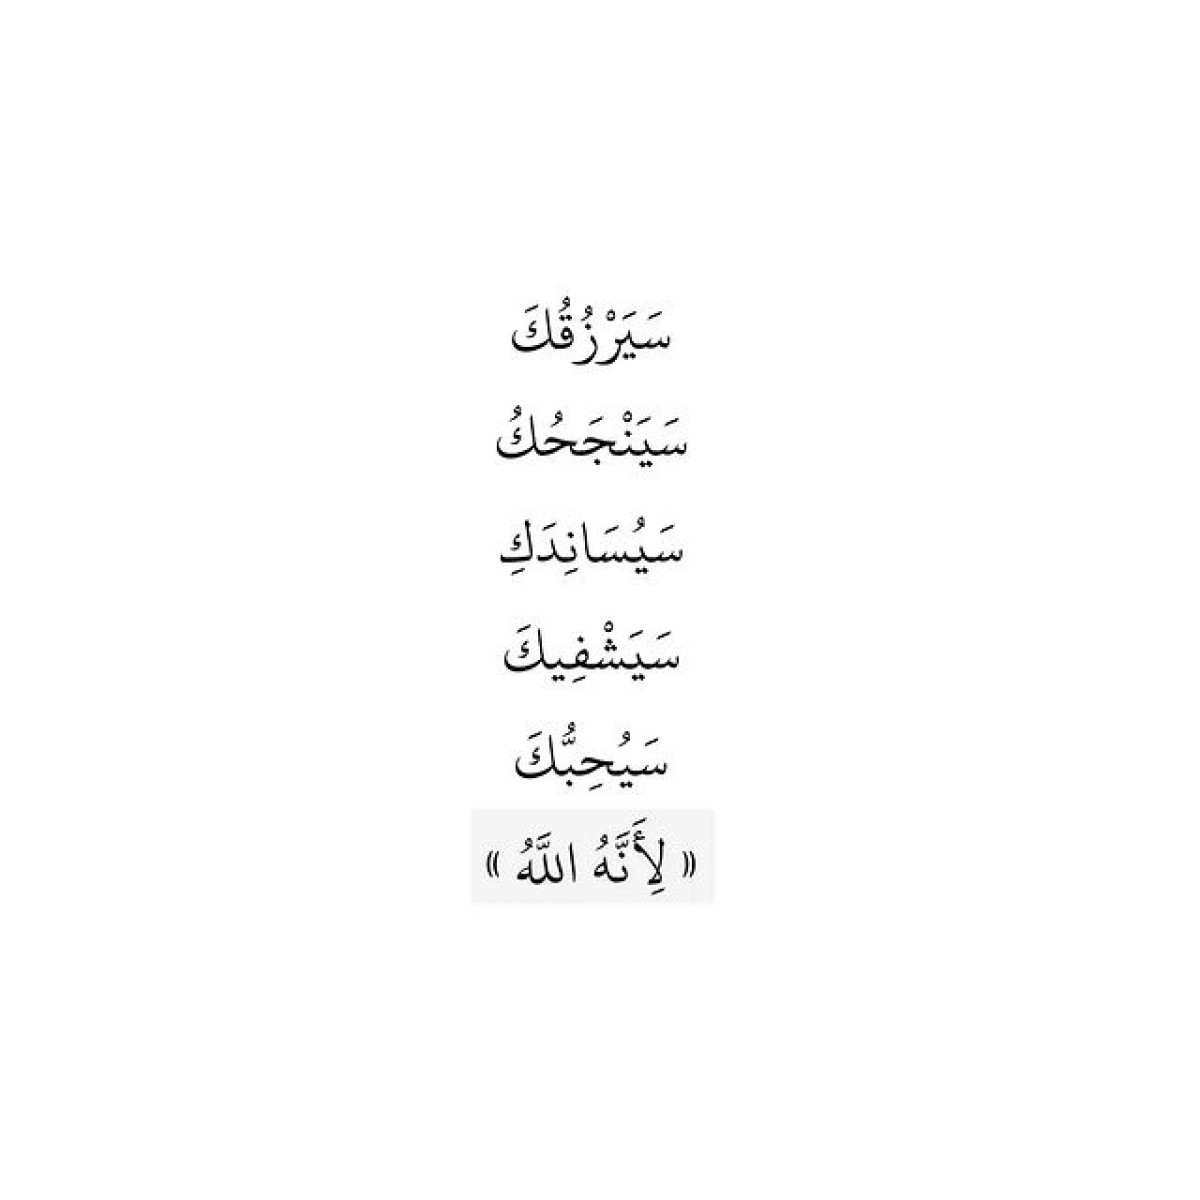 سَيَرْزُقُكَ
سَيَنْجَحُكُ
سَيُسَانِدَكِ
سَيَشْفِيكَ
سَيُحِبُّكَ
« لِأَنَّهُ اللَّهُ »